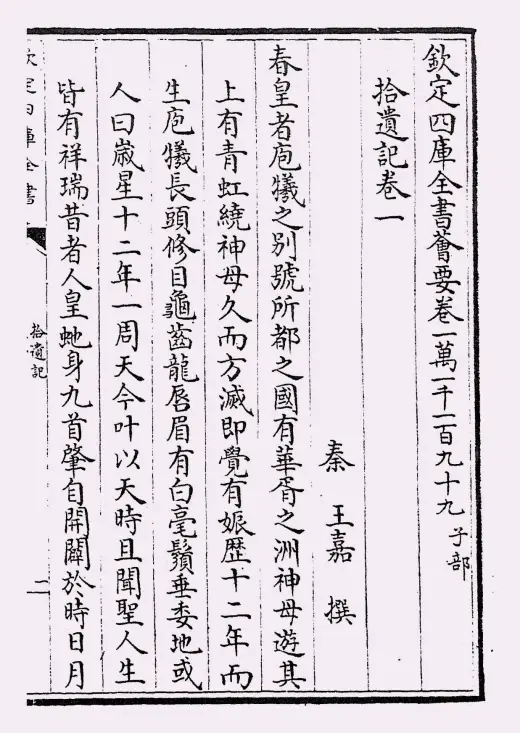 欽定四庫全書薈要卷一萬一千一百九十九 子部
拾遺記卷一
秦 王嘉 撰
春皇者庖犧之別號所都之國有華胥之洲神母遊其
上有青虹繞神母久而方滅即覺有娠歷十二年而
生庖犧長頭修目龜齒龍唇眉有白毫鬚垂委地或
人曰歲星十二年一周天今叶以天時且聞聖人生
皆有祥瑞昔者人皇虵身九首肇自開闢於時日月
欽定四庫全書
拾遺記
二